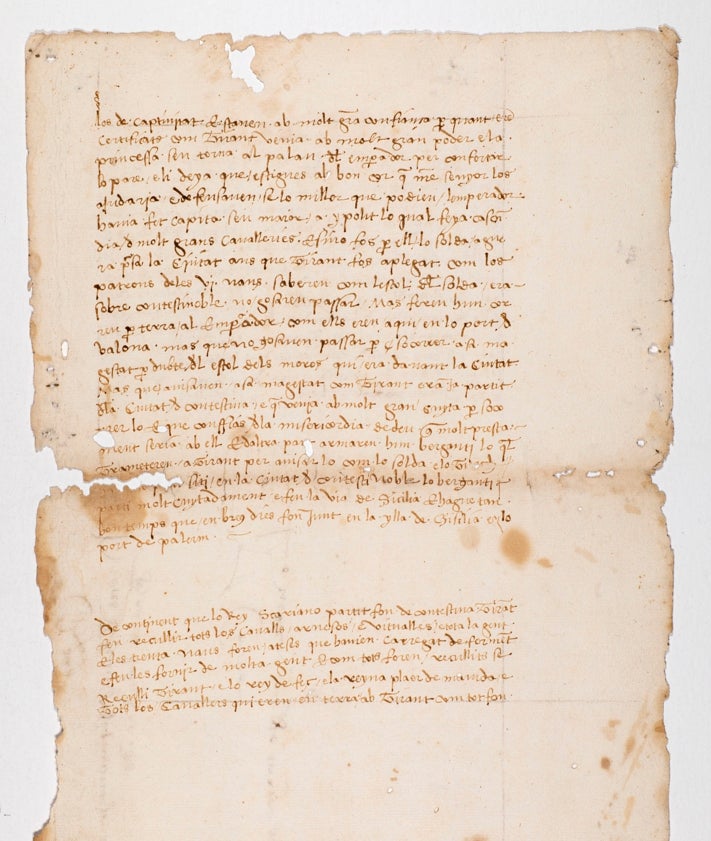 los de captiuitat Estauen ab molt gra confiança p quant ere
Certificats com Tirant venia ab molt gran poder e la
princessa sen torna al palau dl emperador per confortar
lo pare e li deya que estigues ab bon cor q nre senyor los
ajudaria e defensauen se lo millor que podien lemperador
hauia fet capita seu maior a ypolit lo qual feya cascu
dia d molt grans Caualleries E sino fos p ell lo solda ague
ra psa la Ciutat ans que Tirant fos aplegat com los
patrons deles vi naus saberen com lestol dl solda era
sobre contestinoble no gosaren passar Mas feren hun cor
reu p terra al Emperador com ells eren aqui en lo port d
valona mas que no gosauen passar p socorrer a sa ma
gestat p dubte dl estol dels moros qui era dauant la Ciutat
Mas que auisauen a sa magestat com Tirant era ja partit
dla Ciutat d contestina e q venia ab molt gran cuyta p soco
rrer lo E que confias dla misericordia de deu q molt presta
ment seria ab ell E daltra part armaren hun berganti lo ql
trameteren a Tirant per auisar lo com lo solda elo
siti en la Ciutat d contestinoble lo berganti
parti molt cuytadament e feu la via de Sicilia E hague tan
bon temps que en breus dies fon junt en la ylla de Sicilia en lo
port de palerm
De continent que lo Rey Scariano partit fon de contestina Tirant
feu recullir tots los Caualls arnesos e vitualles e tota la gent
E les trenta naus foren ateses que hauien carregat de forment
e feu les fornir de molta gent E com tots foren recullits se
Reculli Tirant e lo rey de feç e la reyna plaer de mauida e
Tots los Cauallers qui eren en terra ab Tirant com tot fon